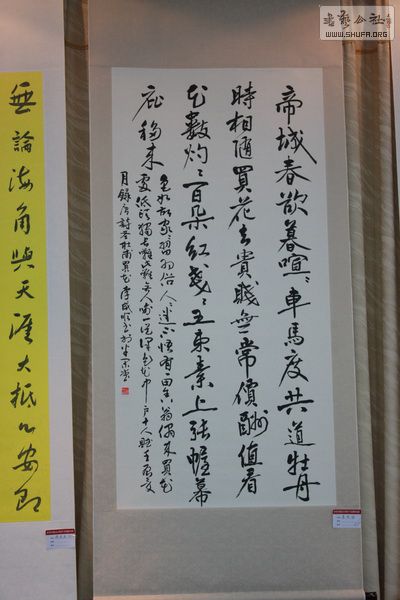 書藝公社
WWW.SHUFA.ORG
帝城春欲暮喧〻車馬度共道牡丹
時相隨買花去貴賤無常價酬值看
花數灼〻百朵紅戔〻五束素上張幄幕
庇移来
色如故家習為俗人〻迷不悟有一田舍翁偶来買花
處低頭獨長歎此歎無人喻一叢深色花十戶中人賦壬辰夏
月錄唐詩買花
無論海角與天涯大抵心安即